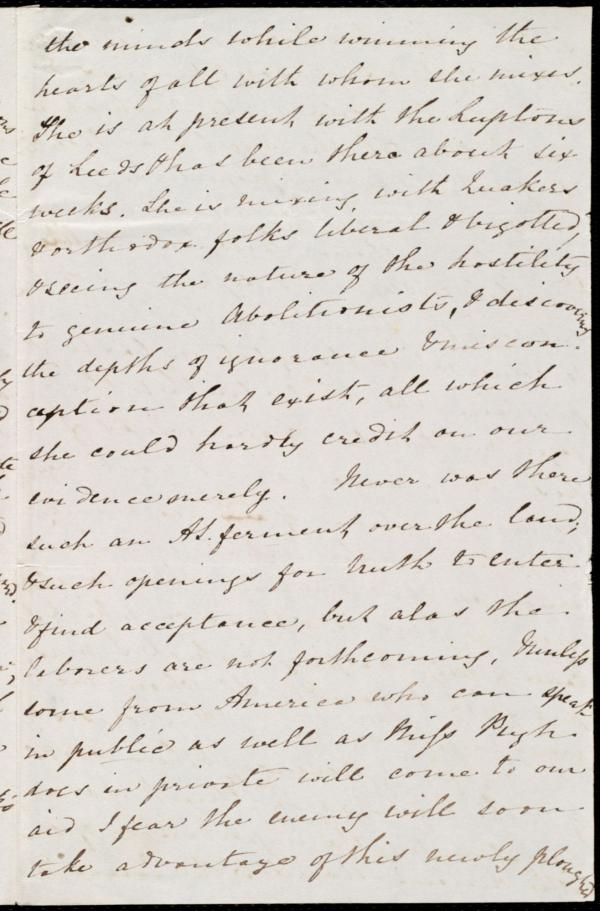 the minds while winning the
hearts of all with whom she mixes.
She is at present with the Luptons
of Leeds & has been there about six
weeks. She is mixing with Quakers
& orthodox folks liberal & bigotted,
& seeing the nature of the hostility
to genuine Abolitionists, & discovering
the depths of ignorance & miscon-
ception that exist, all which
she could hardly credit on our
evidence merely. Never was there
such an AS. ferment over the land,
& such openings for truth to enter
& find acceptance, but alas the
laborers are not forthcoming, & unless
some from America who can speak
in public as well as Miss Pugh
does in private will come to our
aid I fear the enemy will soon
take advantage of this newly ploughed